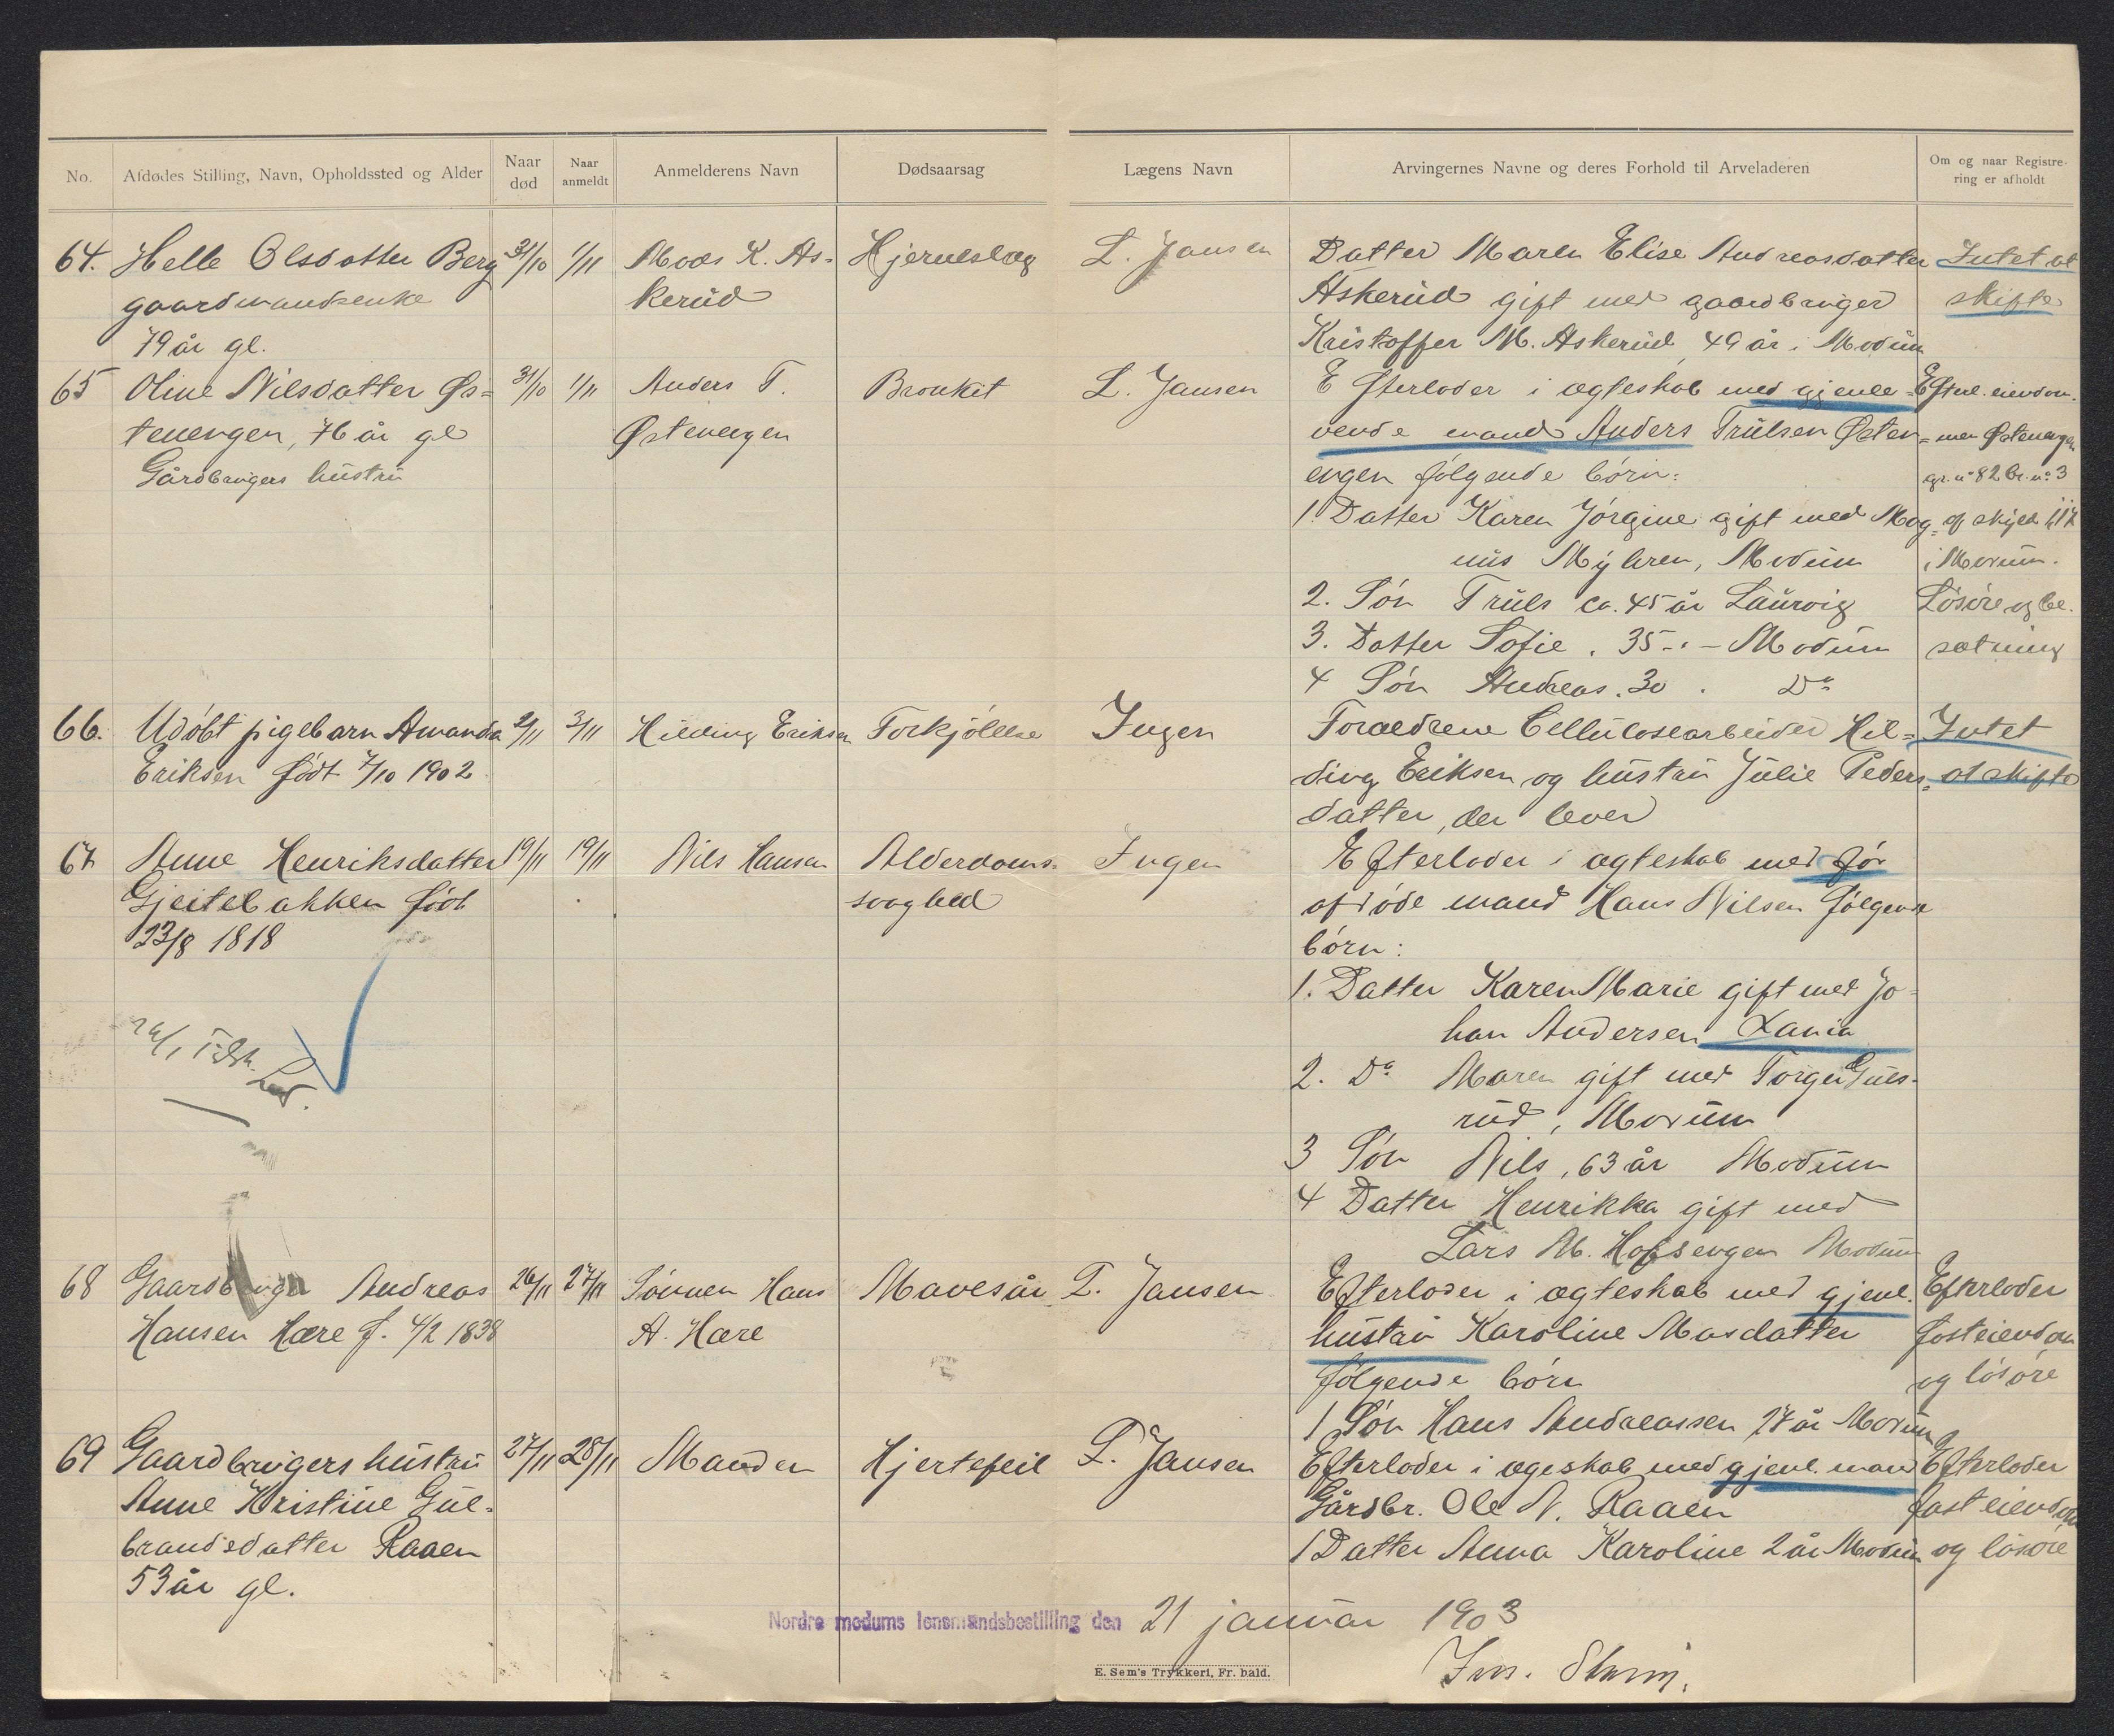 No. Afdødes Stilling, Navn, Opholdssted og Alder Naar død Naar anmeldt Anmelderens Navn Dødsaarsag Lægens Navn Arvingernes Navne og deres Forhold til Arveladeren Om og naar Registrering er afholdt
64. Helle Olsdatter Berg 31/10 1/11 Moos K. As- Hjerneslag L. Jansen Datter Maren Elise Andreasdatter Intet at
gaardmandsenke kerud Askerud gift med gaardbruger skifte
79 år gl. Kristoffer M. Askerud 49 år. Modum
65 Oline Nilsdatter Øs= 31/10 1/11 Anders T. Bronkit L. Jansen Efterlader i ægteskab med gjenle= Efterl. eiendom.
tenengen, 76 år gl Østenengen vende mand Anders Trulsen Østen= men Østenengen
Gårdbrugers hustru engen følgende børn: gr. nº 82 br. nº 3
1. Datter Karen Jørgine gift med Mag= af skyld
nus Myhren, Modum i Modum.
2. Søn Truls ca. 45 år Laurvig Løsøre og be-
3. Datter Sofie. 35 -"- Modum sætning
4 Søn Andreas. 30. Dº
66. Udøbt pigebarn Amanda 2/11 3/11 Hilding Eriksen Forkjølelse Ingen Forældrene Cellulosearbeider Hil= Intet
Eriksen født 7/10 1902 ding Eriksen og hustru Julie Peders= at skifte
datter, der lever
67 Anne Henriksdatter 19/11 19/11 Nils Hansen Alderdoms- Ingen Efterlader i ægteskab med før
Gjeitebakken født svaghed afdøde mand Hans Nilsen følgende
23/8 1818 børn:
1. Datter Karen Marie gift med Jo=
han Andersen Lania
2. Dº Maren gift med Torger Guls-
rud, Modum
3 Søn Nils, 63 år Modum
4 Datter Henrikka gift med
Lars M. Hofsengen Modum
68 Gaardbruger Andreas 26/11 27/11 Sønnen Hans Mavesår L. Jansen Efterlader i ægteskab med gjenl. Efterlader
Hansen Hære f. 4/2 1838 A. Hære hustru Karoline Masdatter fast eiendom
følgende børn og løsøre
1 Søn Hans Andreassen 27 år Modum
69 Gaardbrugers hustru 27/11 28/11 Manden Hjertefeil L. Jansen Efterlader i ægeskab med gjenl. mand Efterlader
Anne Kristine Gul- Gårdbr. Ole N. Raaen fast eiendom
brandsdatter Raaen 1 Datter Anna Karoline 2 år Modum og løsøre
53 år gl.
Nordre modums lensmandsbestilling den 21 januar 1903
E. Sem's Trykkeri, Fr.hald.